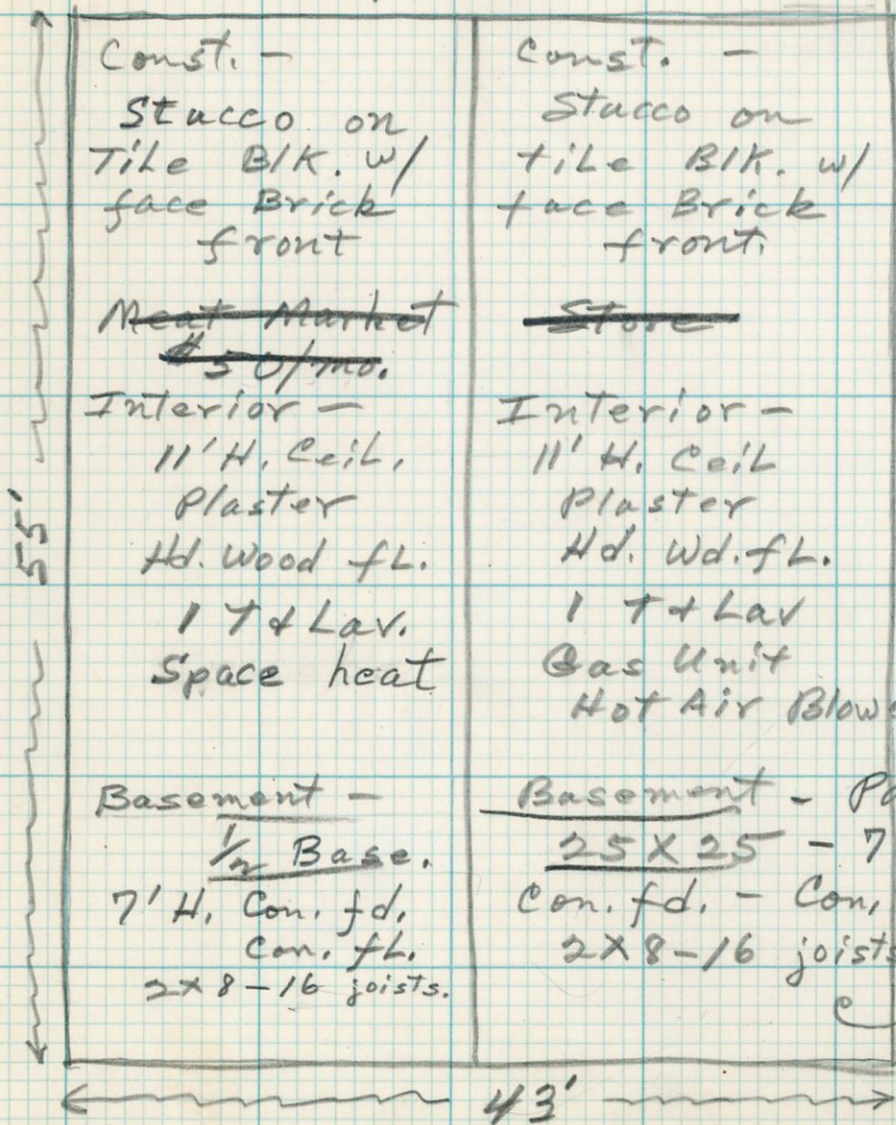 Const. -
Stucco on
Tile Blk. w/
face Brick
front
Meat Market
$50/mo.
Interior -
11' H. Ceil.
Plaster
Hd. Wood fL.
1 T & Lav.
Space heat
Basement -
1/2 Base.
7' H. Con. fd.
Con. fL.
2x8-16 joists.
Const. -
Stucco on
tile Blk. w/
face Brick
front.
Store
Interior -
11' H. Ceil
Plaster
Hd. Wd. fL.
1 T & Lav
Gas Unit
Hot Air Blow
Basement -
25 X 25 - 7
Con. fd. - Con.
2X8-16 joists
55'
43'